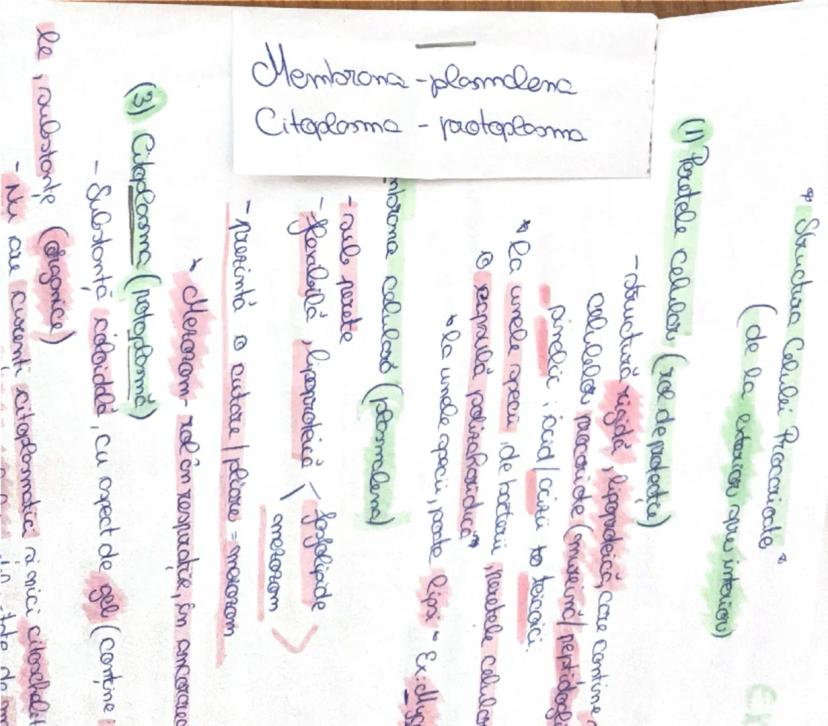 Membrana - plasmalena
Citoplasma - protoplasma
* Structura Celulei Procariote *
(de la exterior spre interior)
(1) Peretele celular (rol de protecție)
- structură rigidă, lipoproteică, care conține
celulelor procariote (mureină / peptidogli
pimelic, acid / acizi teicoici.
* la unele specii de bacterii, peretele celular
o capsulă polizaharidică *
* la unele specii, poate lipsi - Ex:
mbrana celulară (plasmalena)
- sub perete
- flexibilă, lipoproteică / fosfolipide
mezozom
- prezintă o cutare / pliere = mezozom
* Mezozom - rol în respirație, în ancorarea
(3) Citoplasma (protoplasmă)
- Substanță coloidală, cu aspect de gel (conține
le, substanțe (organice)
- Nu are curenți citoplasmatici și nici citoschelet